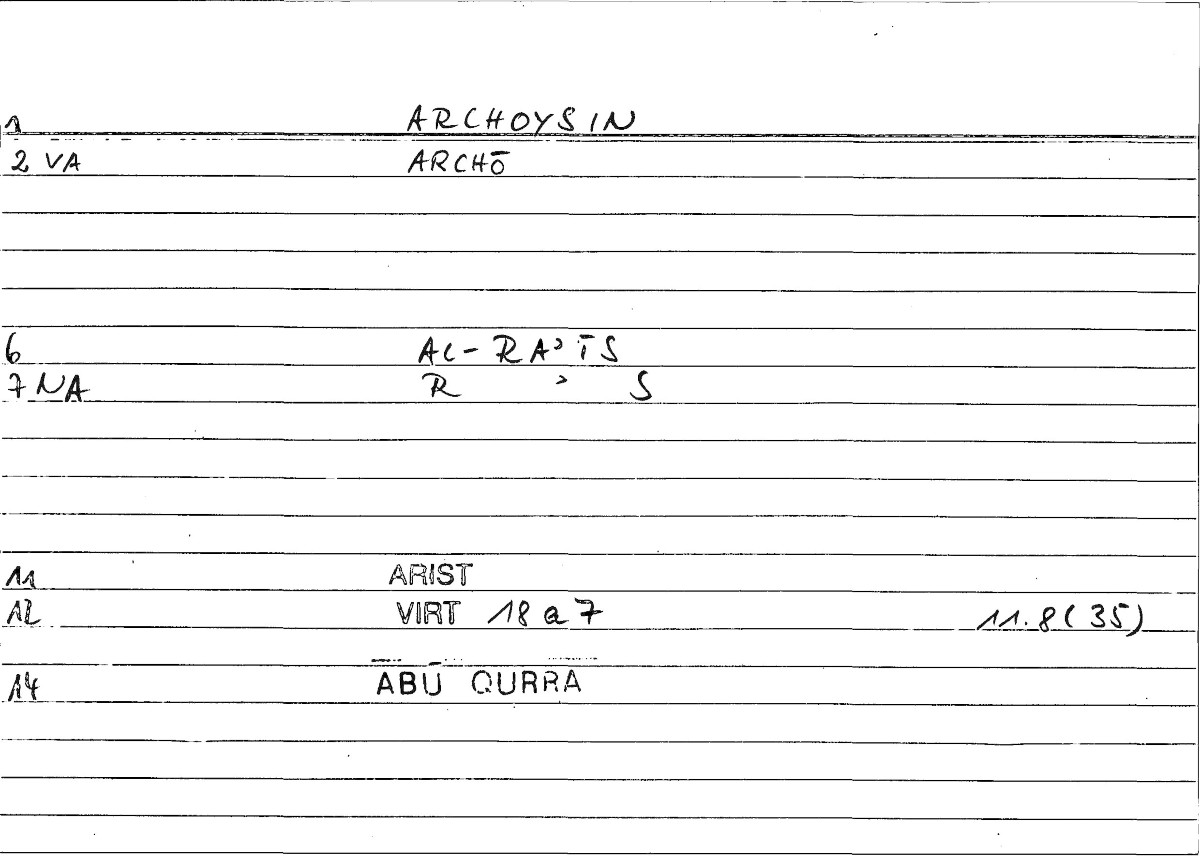 1 ARCHOYSIN
2 VA ARCHŌ
6 AL-RAʾĪS
7 NA R ʾ S
11 ARIST
12 VIRT 18 a 7 11.8(35)
14 ABŪ QURRA